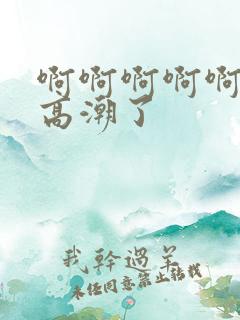 啊啊啊啊啊
高潮了
我幹過羊
未经同意禁止转载